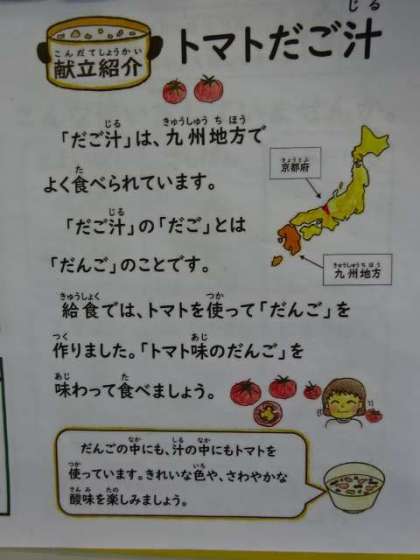 献立紹介
トマトだご汁
「だご汁」は、九州地方で
よく食べられています。
「だご汁」の「だご」とは
「だんご」のことです。
京都府
九州地方
給食では、トマトを使って「だんご」を
作りました。「トマト味のだんご」を
味わって食べましょう。
だんごの中にも、汁の中にもトマトを
使っています。きれいな色や、さわやかな
酸味を楽しみましょう。